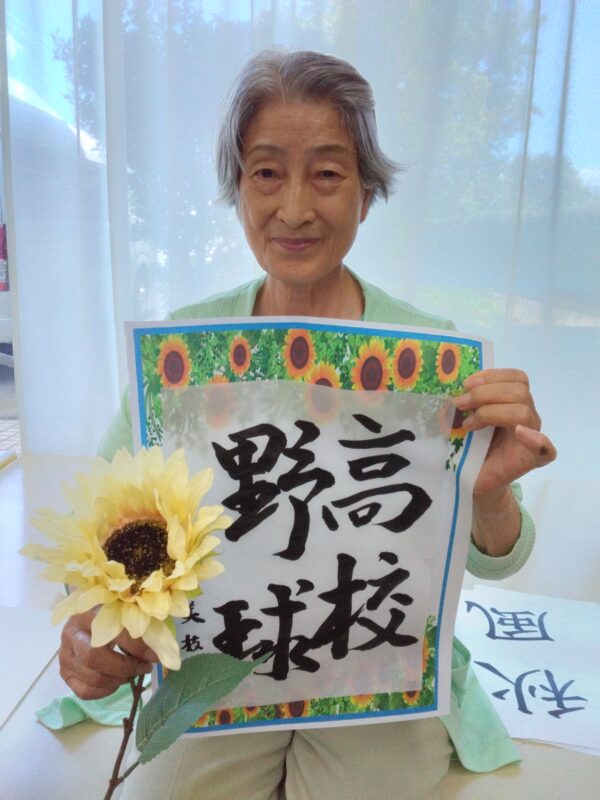 高校
野球
美枝
秋風